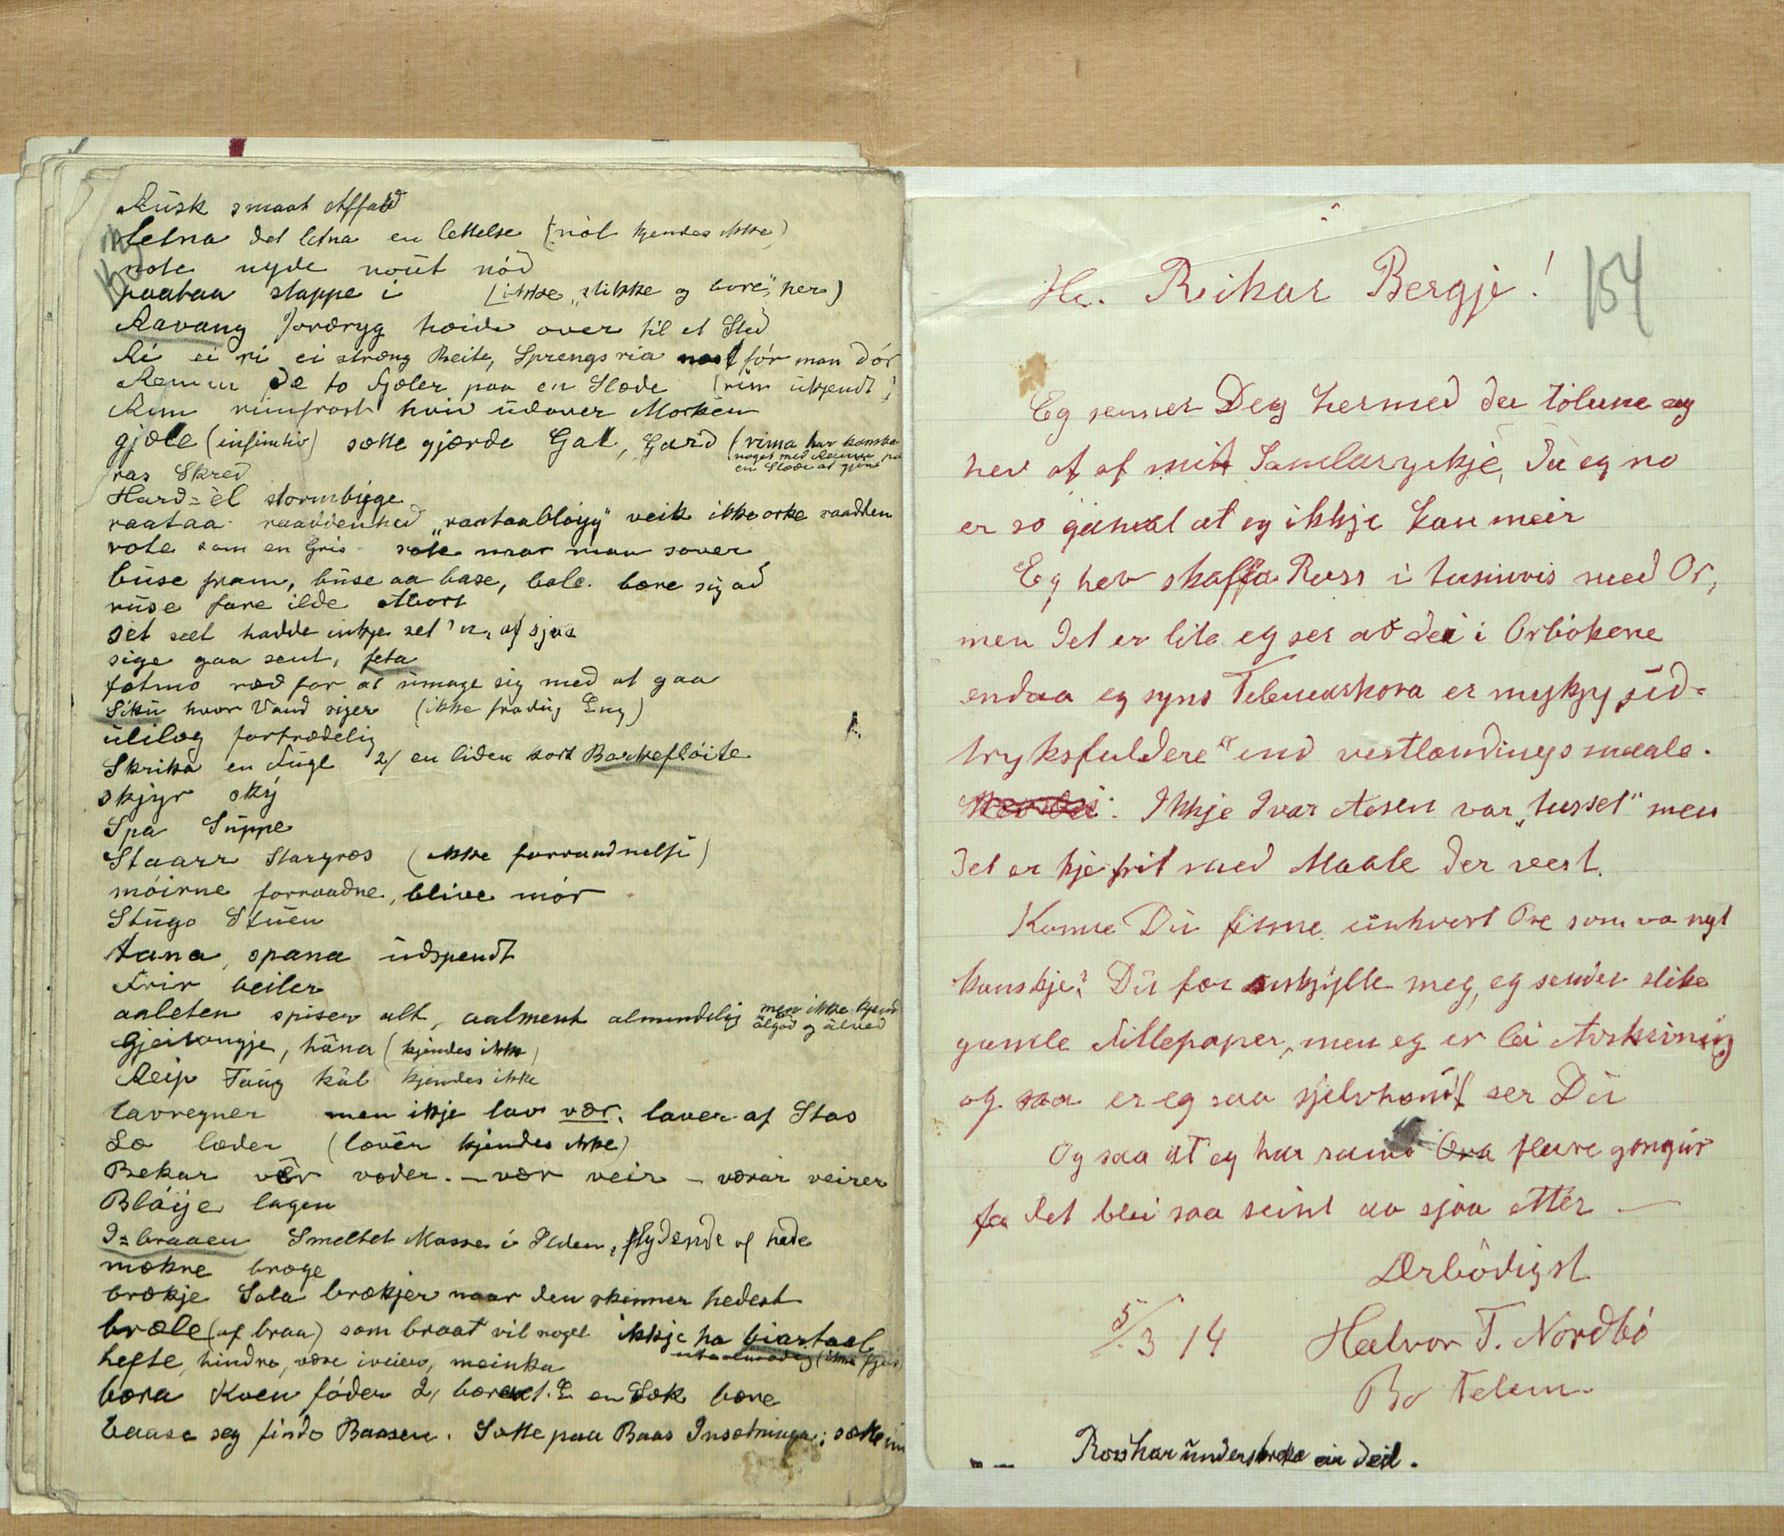 Rusk smaat Affald
letna det letna en lettelse (nòt kjendes ikke)
note nyde nout nód
paataa stappe i (ikke „slikke og vore”, her)
Aavang Jordryg hoide over til et Sted
Ri ei ri ei streng Beite, Sprengsria nest fór man dór
Remmu de to Fjæler paa en Slæde (rim ukjendt)
Rim rimfrost hvid udover Marken
gjæle (infinitiv) sætte gjærde Gal, Gard (rima har kanske
noget med Remmu paa
en Slæde at gjøre
ras Skred
Hard=èl stormbygge
raataa raaddenhed „raataabloyg” veik ikke orke raadden
rote som en Gris sóte naar man sover
buse fram, buse aa base, bale. bære sig ad
ruse fare ilde Abort
set sæt hadde inkje set 'n, af sjaa
sige gaa sent, feta
fótmo ræd for at umage sig med at gaa
Siku hvor Vand siger (ikke fradig Eng)
ulilæg fortrædelig
Skrika en Fugl 2/ en liden kort Barkefløite
skjyr sky
Spa Suppe
Staarr Stargræs (ikke forraadnelse)
móirne forraadne, blive mór
Stugo Stuen
tana, spana udspendt
Frir beiler
aaleten spiser alt, aalment almindelig men ikke kjend
ålgod og ålved
Gjeitongje, håna (kjendes ikke)
Reip Taug kål kjendes ikke
lavregner men ikje lav vær. laver af Stas
Læ læder (lævēr kjendes ikke)
Bekar vēr væder. – vær veir – værar veirer
Blåije lagen
I=braaen Smeltet Masse i Ilden, flydende af hede
mækre bræge
brækje Sola brækjer naar den skinner hedest
bræle (af braa) som braat vil noget ikkje ha biartaal
utaalmodig (ikke kjend
hefte, hindre, være iveien, meinka
bæra Koen fóder 2/ bæra en Sæk bære
baase seg finde Baasen. Sætte paa Baas Insætninga; sætte in
Hr. Rikar Bergje!
154
Eg senner Deg hermed dei tolune eg
hev at af mit Samlarykje, då eg no
er so gamal at eg ikkje kan meir
Eg hev skaffa Ross i tusinvis med Or,
men det er lite eg ser av dei i Orbókene
endaa eg syns Telemarkora er mykjy ud=
tryksfuldere er end vestlandingsmaale.
Ikkje Ivar Aasen var „tusset” men
det er kje frit med Maale der vest.
Kunne Du finne einkvert Ore som va nyt
kanskje? Du fær orskylle meg, eg sender slike
gamle Fillepaper, men eg er lei Avskriving
og saa er eg saa sjelvhendt ser Du
Og saa at eg har samo Ora fleire gongur
fo det blei saa seint aa sjaa etter —
Ærbödigst
5/3 14 Halvor T. Nordbó
Bø Telem.
Ross har understreka ein deil.